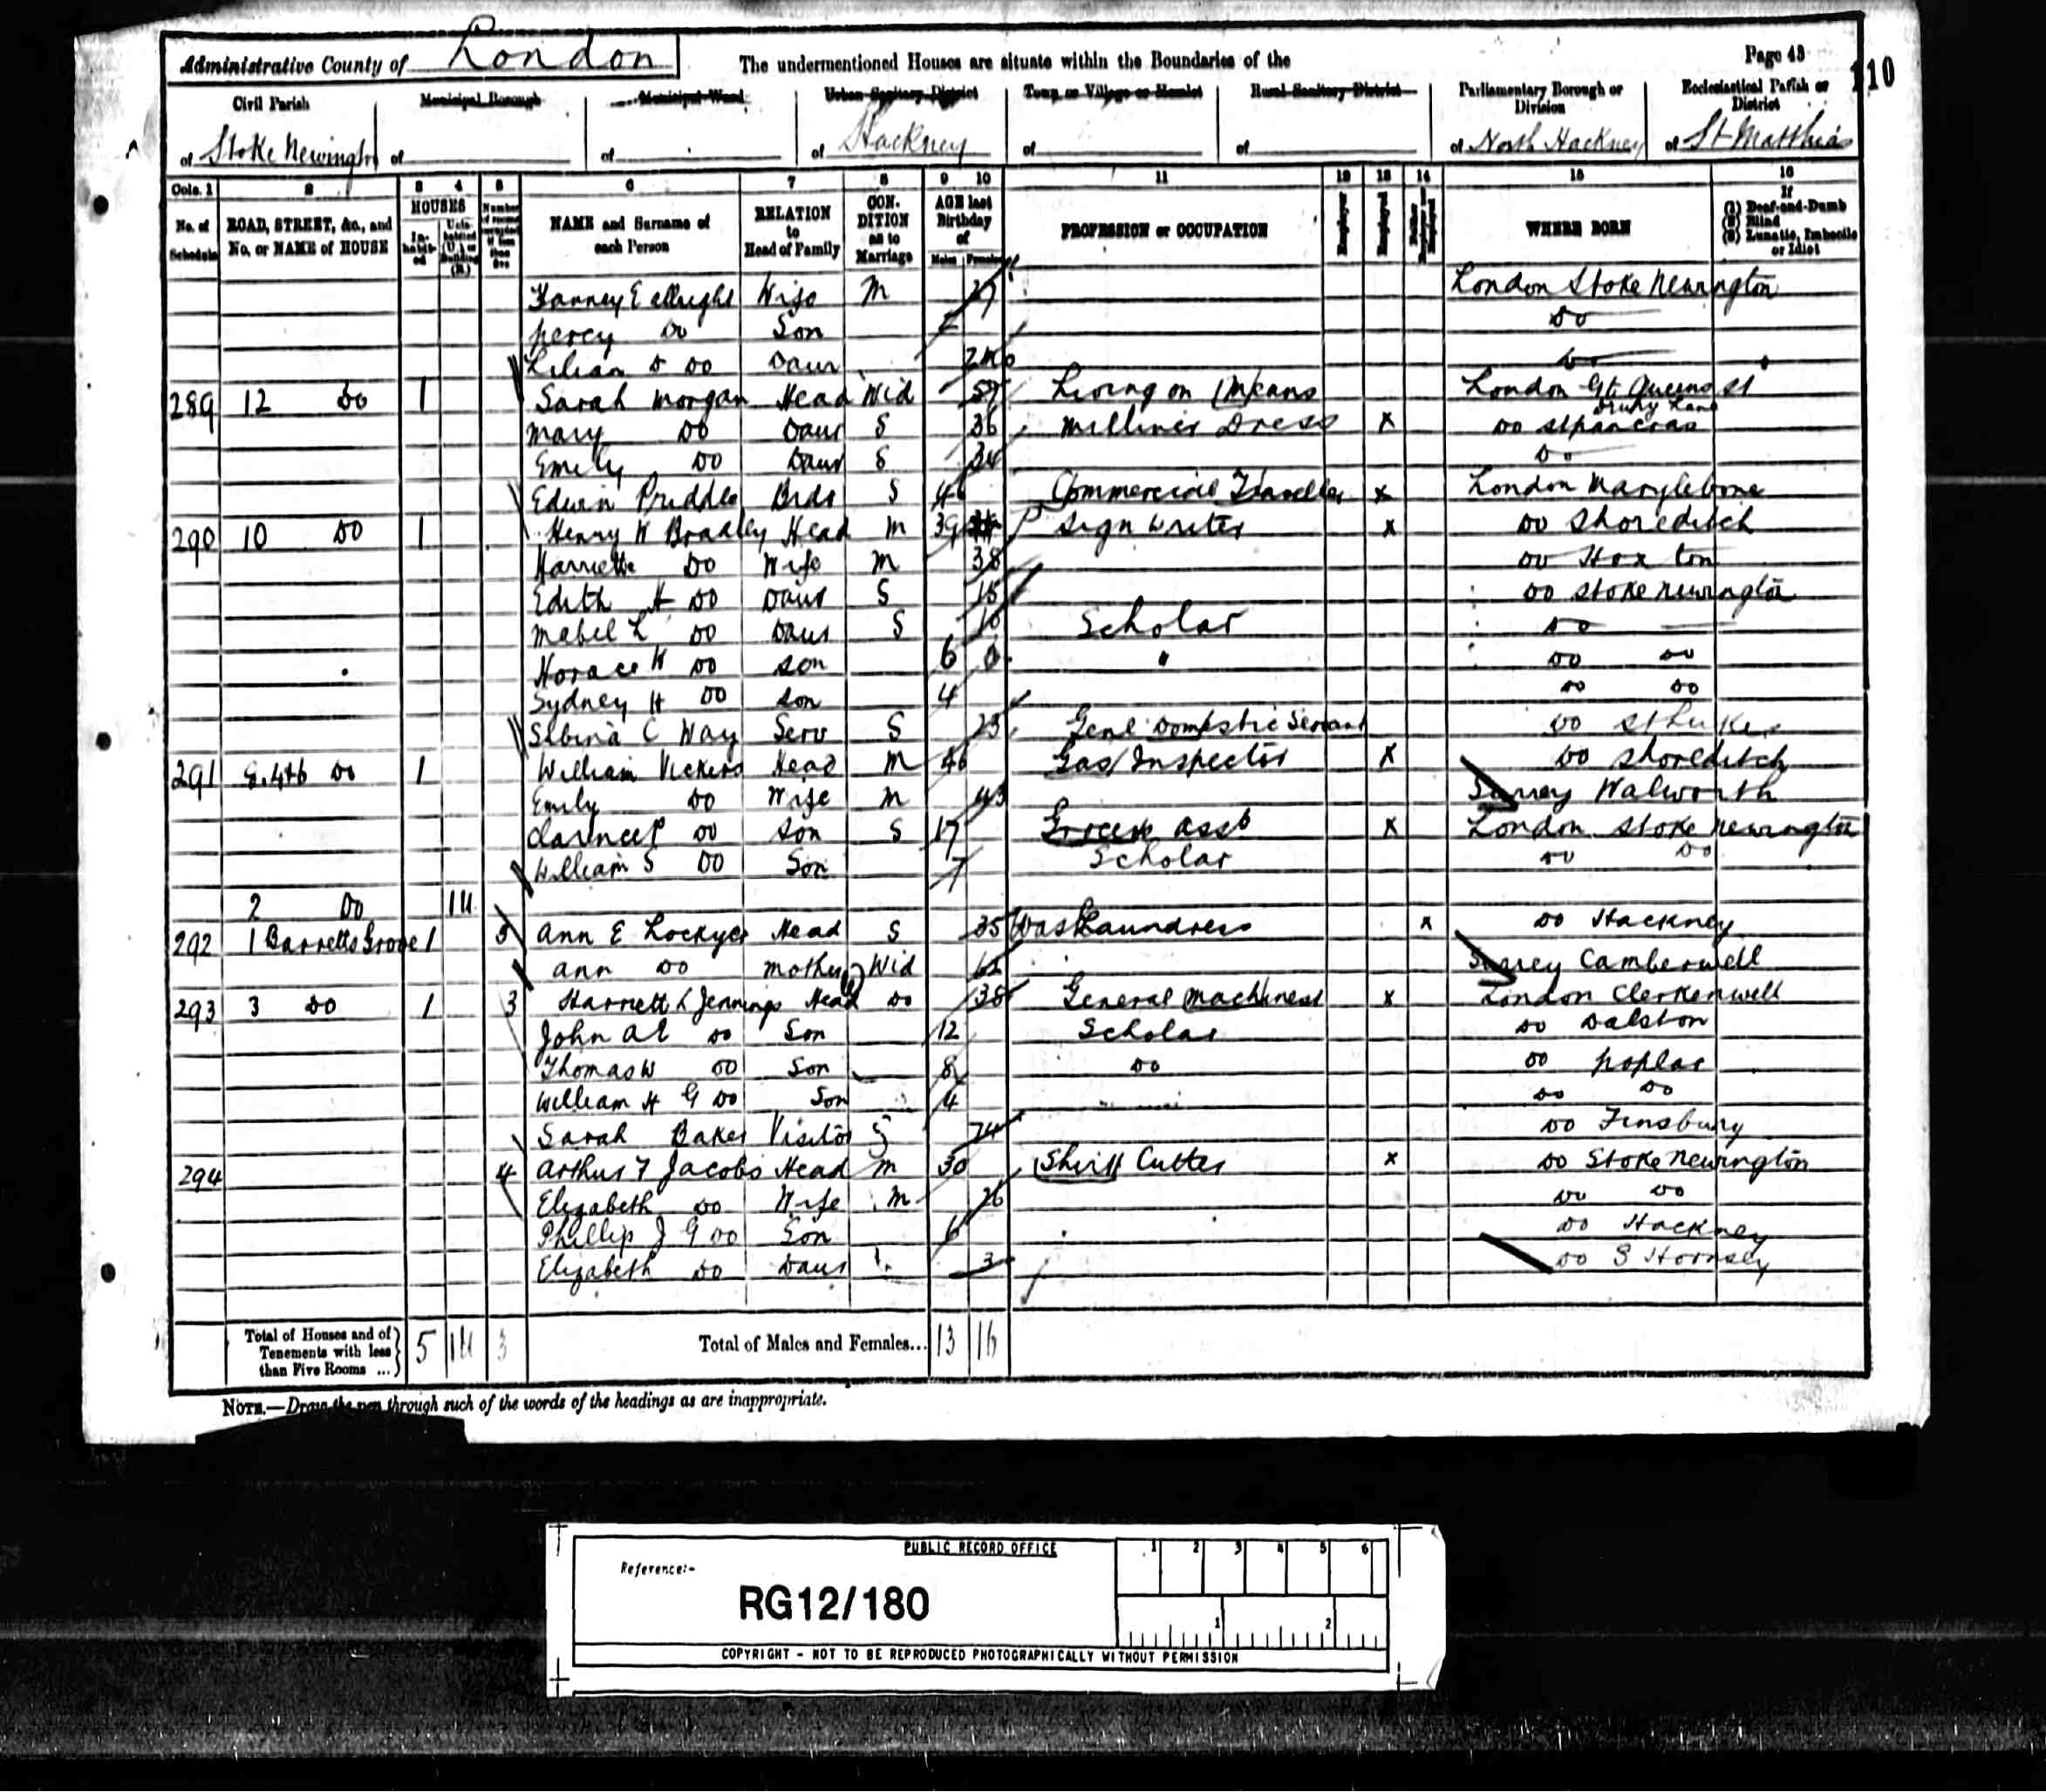 Administrative County of London
The undermentioned Houses are situate within the Boundaries of the
Page 43
110
Civil Parish
Municipal Borough
Municipal Ward
Urban Sanitary District
Town or Village or Hamlet
Rural Sanitary District
Parliamentary Borough or Division
Ecclesiastical Parish or District
of Stoke Newington of of of Hackney of of of North Hackney of St Matthias
Cols. 1 2 3 4 5 6 7 8 9 10 11 12 13 14 15 16
No. of Schedule
ROAD, STREET, &c., and No. or NAME of HOUSE
HOUSES
In-habit-ed
Unin-habited (U.) or Building (B.)
Number of rooms occupied if less than five
NAME and Surname of each Person
RELATION to Head of Family
CON-DITION as to Marriage
AGE last Birthday of
Males Females
PROFESSION or OCCUPATION
Employer
Employed
Neither Employer nor Employed
WHERE BORN
If
(1) Deaf-and-Dumb
(2) Blind
(3) Lunatic, Imbecile or Idiot
Fanney E Wife M 27 London Stoke Newington
Percy Do Son Do
Lilian Do Daur Do
289 12 Do 1 Sarah Morgan Head Wid 59 Living on Means London Gt Queens St
Drury Lane
Mary Do Daur S 36 Milliner Dress x Do St Pancras
Emily Do Daur S 34 Do
Edwin Priddle S 46 Commercial Traveller x London Marylebone
290 10 Do 1 Henry W Bradley Head M 39 Sign Writer x Do Shoreditch
Harriette Do Wife M 38 Do Hoxton
Edith H Do Daur S 15 Do Stoke Newington
Mabel L Do Daur S 10 Scholar Do
Horace W Do Son 6 Do Do
Sydney H Do Son 4 Do Do
Selbina C Way Serv S 23 Genl Domestic Servant Do St Lukes
291 & 4 Do 1 William Vickers Head M 46 Gas Inspector x Do Shoreditch
Emily Do Wife M 43 Surrey Walworth
Clarence P Do Son S 17 Grocers Asst x London Stoke Newington
William S Do Son 7 Scholar Do Do
2 Do 1U
292 1 Barretts Grove 1 3 Ann E Lockyer Head S 35 Laundress x Do Hackney
Ann Do Mother Wid Surrey Camberwell
293 3 Do 1 3 Harriett L Jennings Head Do 38 General Machinest x London Clerkenwell
John Al Do Son 12 Scholar Do Dalston
Thomas W Do Son 8 Do Do Poplar
William H G Do Son 4 Do Do
Sarah Baker Visitor S 24 Do Finsbury
294 4 Arthur F Jacobs Head M 30 Shirt Cutter x Do Stoke Newington
Elizabeth Do Wife M 26 Do Do
Phillip J G Do Son 6 Do Hackney
Elizabeth Do Daur 3 Do S Hornsey
Total of Houses and of Tenements with less than Five Rooms ... 5 1U 3 Total of Males and Females... 13 16
NOTE.—Draw the pen through such of the words of the headings as are inappropriate.
PUBLIC RECORD OFFICE
1 2 3 4 5 6
Reference:-
RG12/180
1 2
COPYRIGHT - NOT TO BE REPRODUCED PHOTOGRAPHICALLY WITHOUT PERMISSION